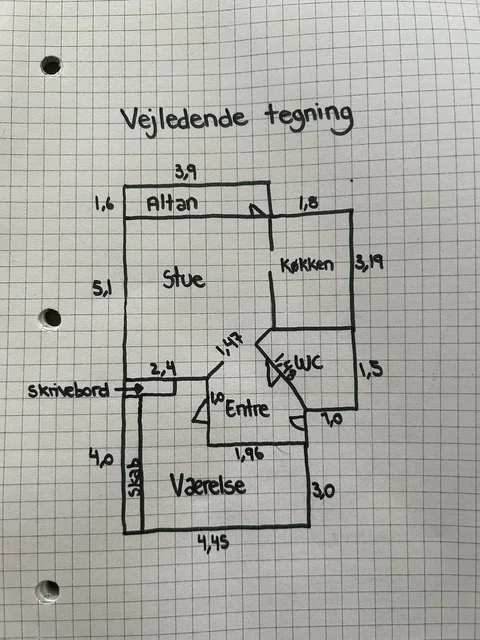 Vejledende tegning
3,9
1,6
Altan
1,8
5,1
Stue
Køkken
3,19
1,47
2,4
WC
1,5
skrivebord
1,0
Entre
1,0
4,0
skab
1,96
Værelse
3,0
4,45